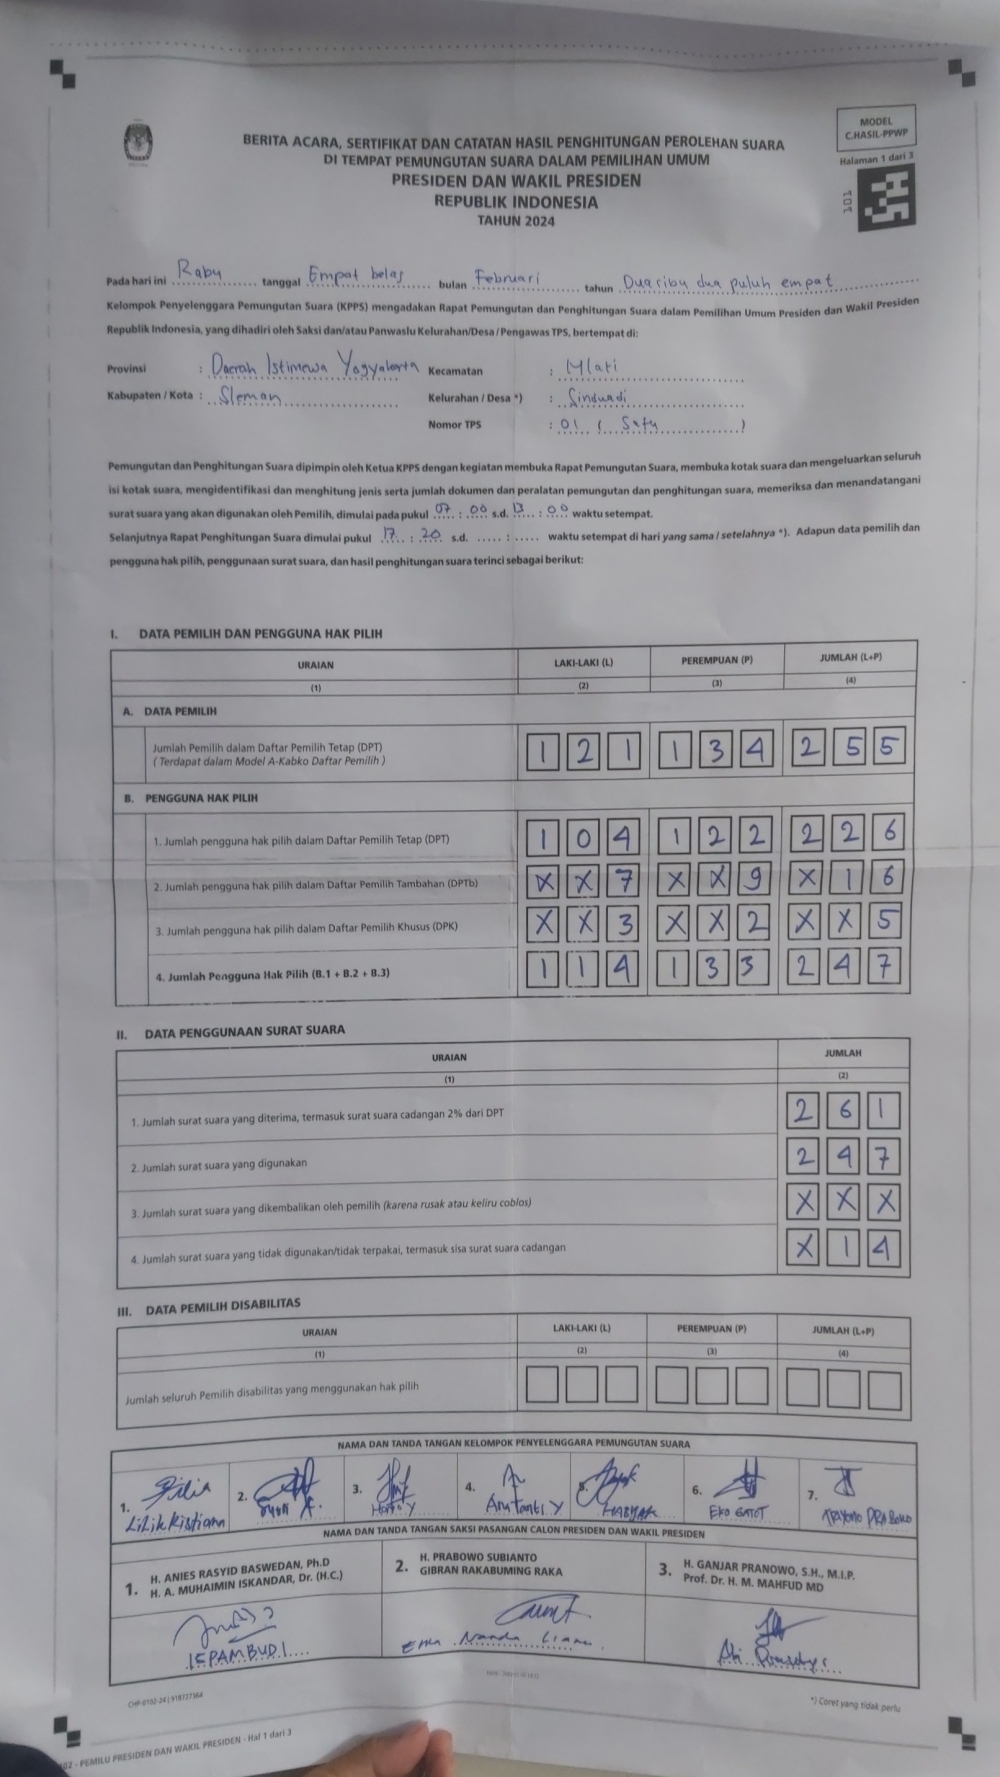 MODEL
C.HASIL-PPWP
Halaman 1 dari 3
101
BERITA ACARA, SERTIFIKAT DAN CATATAN HASIL PENGHITUNGAN PEROLEHAN SUARA
DI TEMPAT PEMUNGUTAN SUARA DALAM PEMILIHAN UMUM
PRESIDEN DAN WAKIL PRESIDEN
REPUBLIK INDONESIA
TAHUN 2024
Pada hari ini Rabu tanggal Empat belas bulan Februari tahun Dua ribu dua puluh empat
Kelompok Penyelenggara Pemungutan Suara (KPPS) mengadakan Rapat Pemungutan dan Penghitungan Suara dalam Pemilihan Umum Presiden dan Wakil Presiden
Republik Indonesia, yang dihadiri oleh Saksi dan/atau Panwaslu Kelurahan/Desa / Pengawas TPS, bertempat di:
Provinsi : Daerah Istimewa Yogyakarta Kecamatan : Mlati
Kabupaten / Kota : Sleman Kelurahan / Desa *) : Sinduadi
Nomor TPS : 01 ( Satu )
Pemungutan dan Penghitungan Suara dipimpin oleh Ketua KPPS dengan kegiatan membuka Rapat Pemungutan Suara, membuka kotak suara dan mengeluarkan seluruh
isi kotak suara, mengidentifikasi dan menghitung jenis serta jumlah dokumen dan peralatan pemungutan dan penghitungan suara, memeriksa dan menandatangani
surat suara yang akan digunakan oleh Pemilih, dimulai pada pukul 07 : 00 s.d. 13 : 00 waktu setempat.
Selanjutnya Rapat Penghitungan Suara dimulai pukul 17 : 20 s.d. ..... : ..... waktu setempat di hari yang sama / setelahnya *). Adapun data pemilih dan
pengguna hak pilih, penggunaan surat suara, dan hasil penghitungan suara terinci sebagai berikut:
I. DATA PEMILIH DAN PENGGUNA HAK PILIH
URAIAN LAKI-LAKI (L) PEREMPUAN (P) JUMLAH (L+P)
(1) (2) (3) (4)
A. DATA PEMILIH
Jumlah Pemilih dalam Daftar Pemilih Tetap (DPT) 1 2 1 1 3 4 2 5 5
( Terdapat dalam Model A-Kabko Daftar Pemilih )
B. PENGGUNA HAK PILIH
1. Jumlah pengguna hak pilih dalam Daftar Pemilih Tetap (DPT) 1 0 4 1 2 2 2 2 6
2. Jumlah pengguna hak pilih dalam Daftar Pemilih Tambahan (DPTb) X X 7 X X 9 X 1 6
3. Jumlah pengguna hak pilih dalam Daftar Pemilih Khusus (DPK) X X 3 X X 2 X X 5
4. Jumlah Pengguna Hak Pilih (B.1 + B.2 + B.3) 1 1 4 1 3 3 2 4 7
II. DATA PENGGUNAAN SURAT SUARA
URAIAN JUMLAH
(1) (2)
1. Jumlah surat suara yang diterima, termasuk surat suara cadangan 2% dari DPT 2 6 1
2. Jumlah surat suara yang digunakan 2 4 7
3. Jumlah surat suara yang dikembalikan oleh pemilih (karena rusak atau keliru coblos) X X X
4. Jumlah surat suara yang tidak digunakan/tidak terpakai, termasuk sisa surat suara cadangan X 1 4
III. DATA PEMILIH DISABILITAS
URAIAN LAKI-LAKI (L) PEREMPUAN (P) JUMLAH (L+P)
(1) (2) (3) (4)
Jumlah seluruh Pemilih disabilitas yang menggunakan hak pilih
NAMA DAN TANDA TANGAN KELOMPOK PENYELENGGARA PEMUNGUTAN SUARA
1. 2. 3. 4. 5. 6. 7.
Lilik Kistiana Arutanti Y EKO GATOT
NAMA DAN TANDA TANGAN SAKSI PASANGAN CALON PRESIDEN DAN WAKIL PRESIDEN
1. H. ANIES RASYID BASWEDAN, Ph.D
H. A. MUHAIMIN ISKANDAR, Dr. (H.C.)
2. H. PRABOWO SUBIANTO
GIBRAN RAKABUMING RAKA
3. H. GANJAR PRANOWO, S.H., M.I.P.
Prof. Dr. H. M. MAHFUD MD
ISPAMBUDI
CHP-0102-24 | 918727364
*) Coret yang tidak perlu
- PEMILU PRESIDEN DAN WAKIL PRESIDEN - Hal 1 dari 3